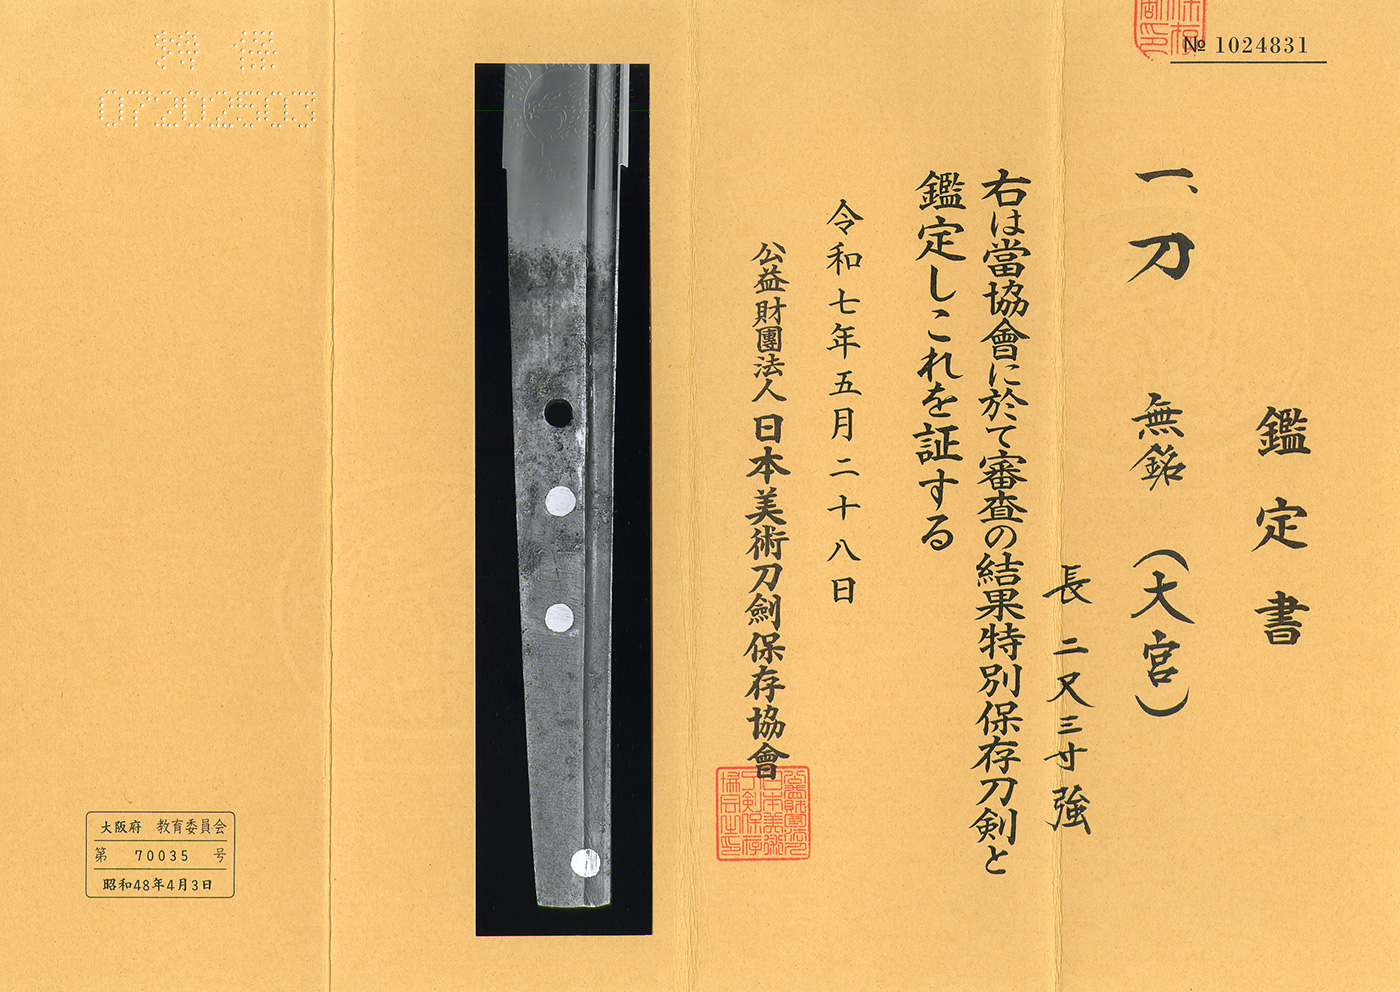 № 1024831
鑑定書
一、刀 無銘（大宮）
長二又三寸強
右は當協會に於て審査の結果特別保存刀剣と
鑑定しこれを証する
令和七年五月二十八日
公益財團法人日本美術刀劍保存協會
07202503
大阪府 教育委員会
第 70035 号
昭和48年4月3日